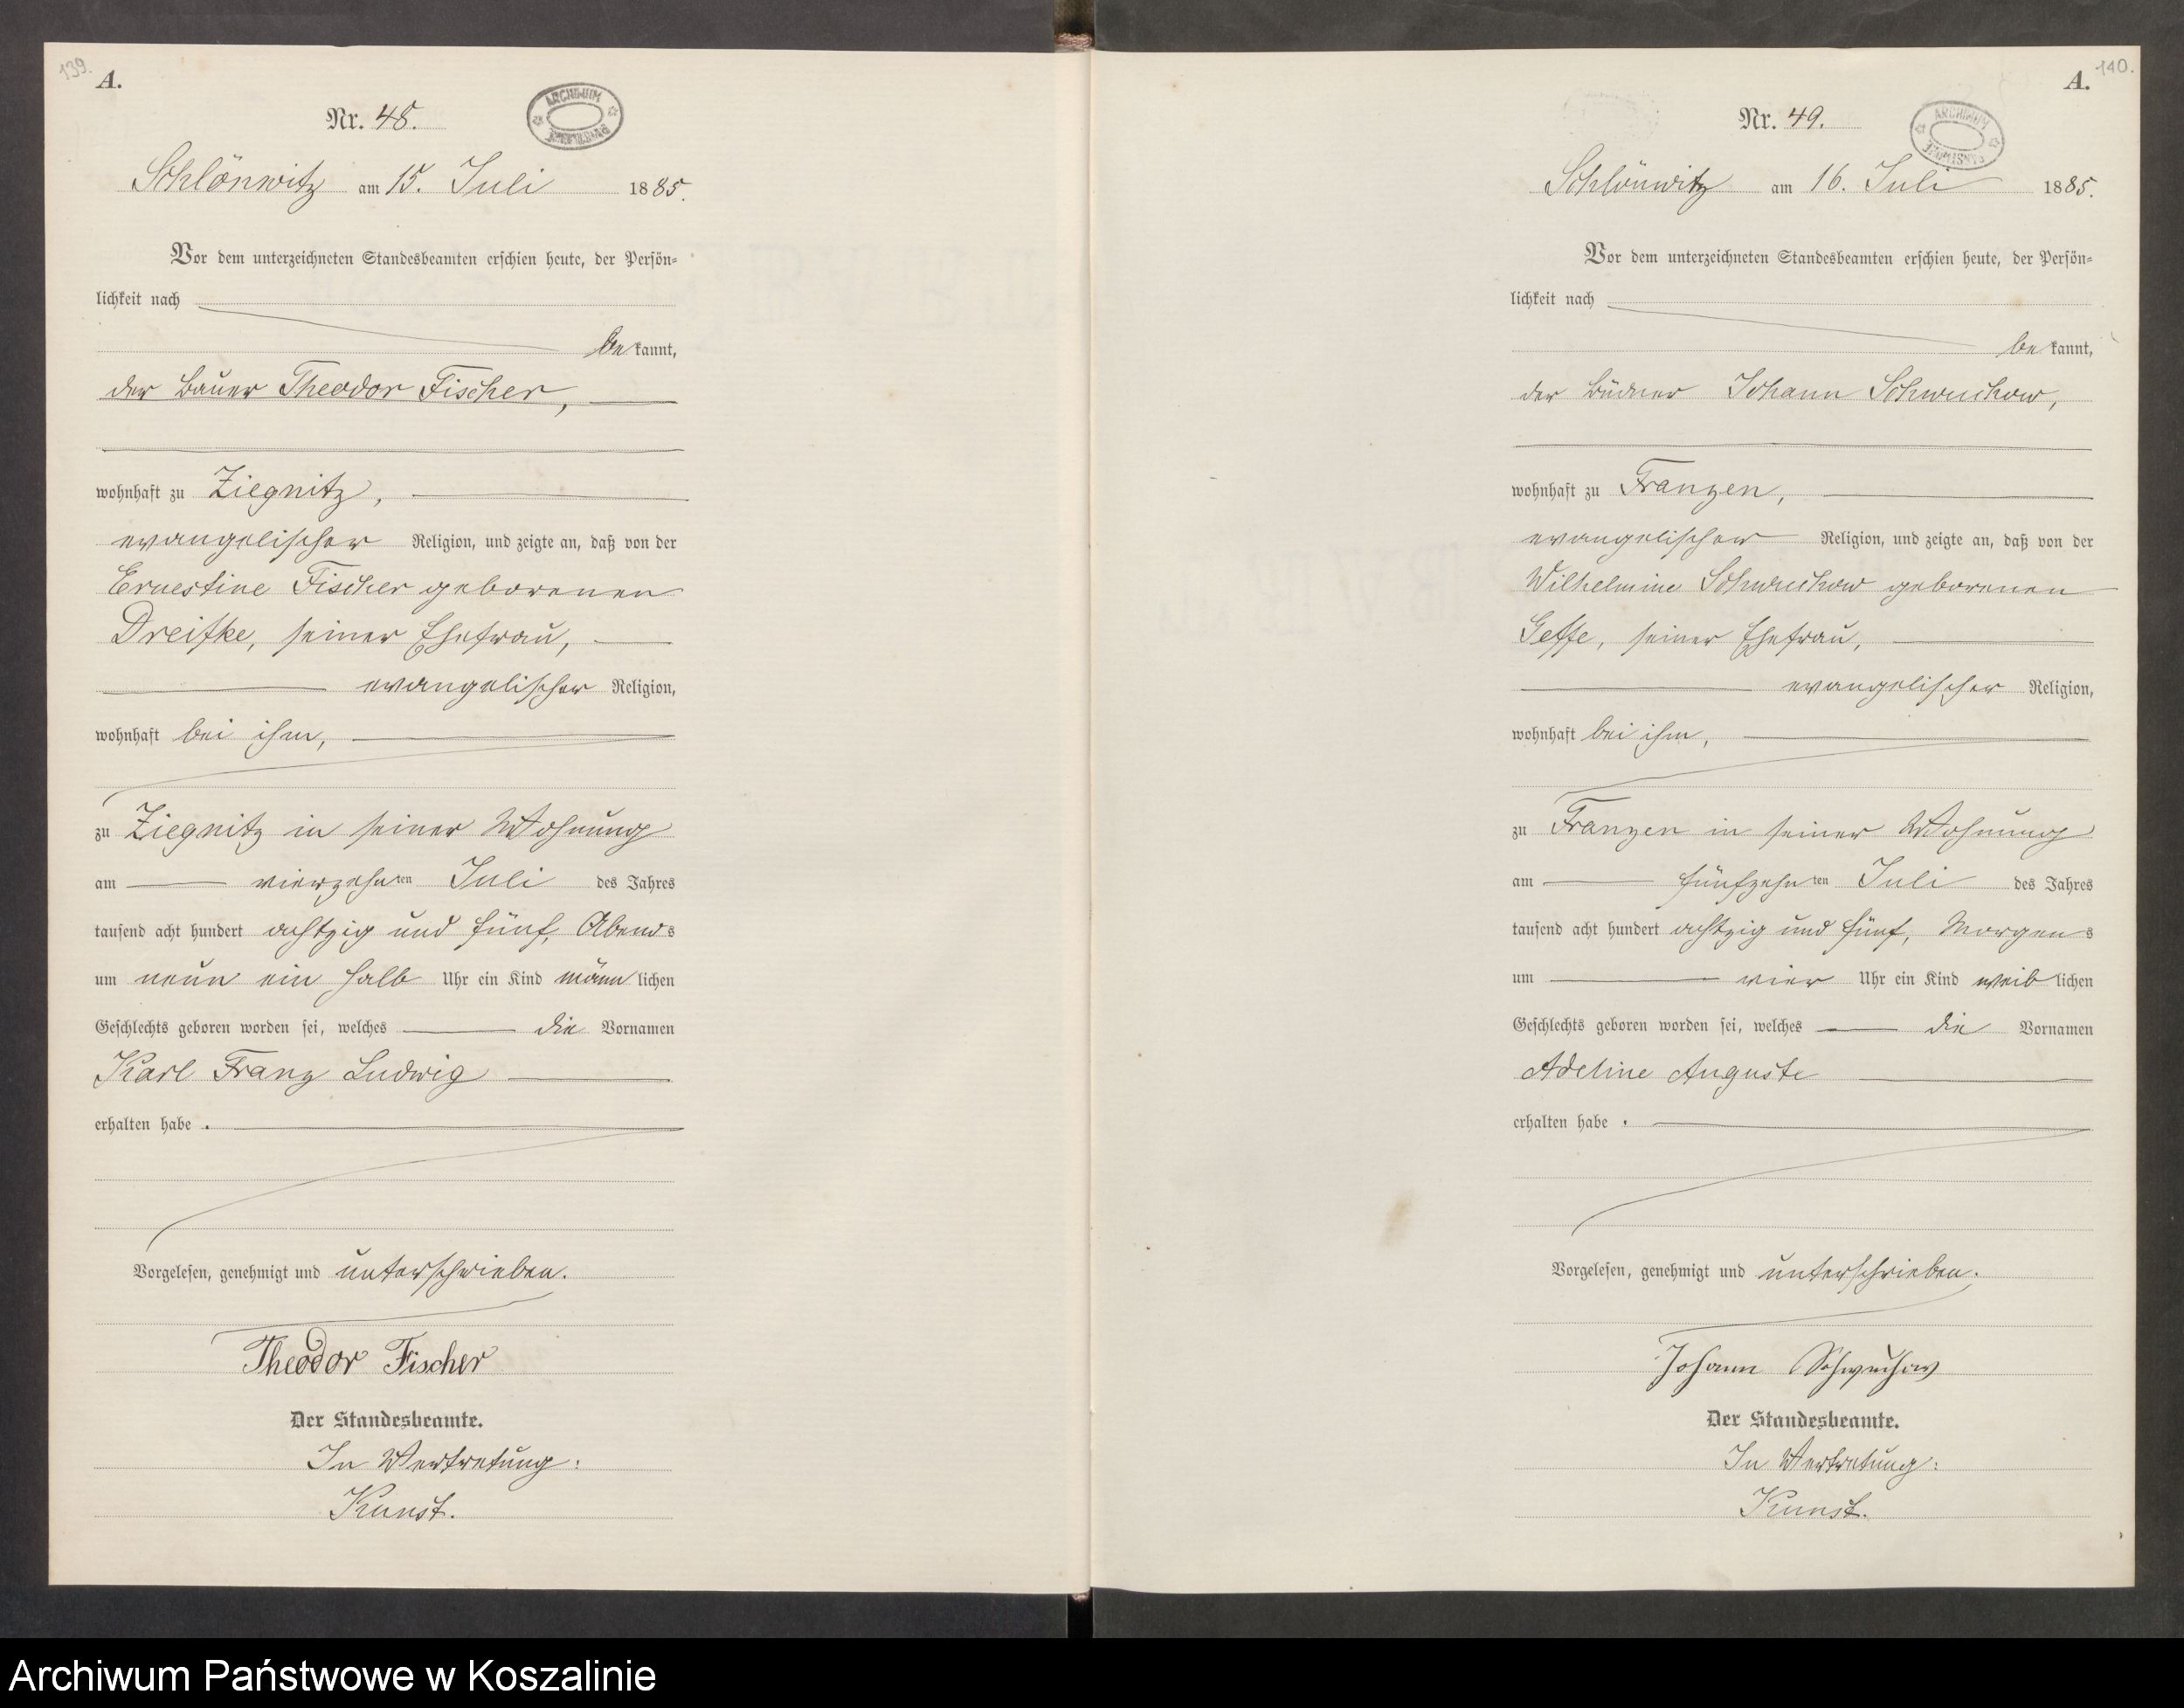 139.
A.
Nr. 48.
ARCHIWUM
Schlönwitz am 15. Juli 1885.
Vor dem unterzeichneten Standesbeamten erschien heute, der Persön-
lichkeit nach
bekannt,
der Bauer Theodor Fischer,
wohnhaft zu Ziegnitz,
evangelischer Religion, und zeigte an, daß von der
Ernestine Fischer geborenen
Dreifke, seiner Ehefrau,
evangelischer Religion,
wohnhaft bei ihm,
zu Ziegnitz in seiner Wohnung
am vierzehnten Juli des Jahres
tausend acht hundert achtzig und fünf, Abends
um neun ein halb Uhr ein Kind männlichen
Geschlechts geboren worden sei, welches die Vornamen
Karl Franz Ludwig
erhalten habe.
Vorgelesen, genehmigt und unterschrieben.
Theodor Fischer
Der Standesbeamte.
In Vertretung:
Kunst.
140.
A.
Nr. 49.
ARCHIWUM
Schlönwitz am 16. Juli 1885.
Vor dem unterzeichneten Standesbeamten erschien heute, der Persön-
lichkeit nach
bekannt,
der Büdner Johann Schwuchow,
wohnhaft zu Franzen,
evangelischer Religion, und zeigte an, daß von der
Wilhelmine Schwuchow geborenen
seiner Ehefrau,
evangelischer Religion,
wohnhaft bei ihm,
zu Franzen in seiner Wohnung
am fünfzehnten Juli des Jahres
tausend acht hundert achtzig und fünf, Morgens
um vier Uhr ein Kind weiblichen
Geschlechts geboren worden sei, welches die Vornamen
Adeline Auguste
erhalten habe.
Vorgelesen, genehmigt und unterschrieben.
Johann Schwuchow
Der Standesbeamte.
In Vertretung:
Kunst.
Archiwum Państwowe w Koszalinie